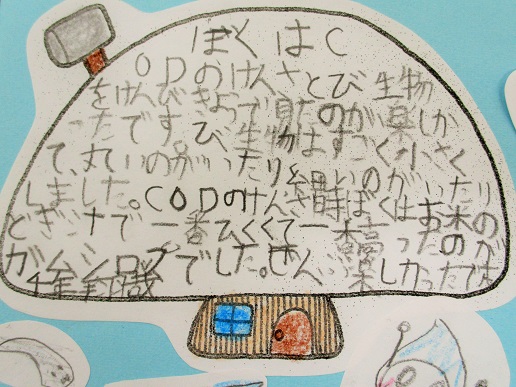 ぼくはC
ODのけんさとび生物
をけんびきょうで見たのが楽しか
ったです。び生物はすごく小さく
て、丸いのがいたり細いのがいたり
しました。CODのけんさ時ぼくはお米の
とぎ汁で一番ひくくて一番高ったのが
がムシロップでした。ぜんぶ楽しかったです